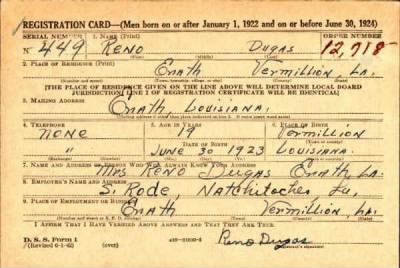 REGISTRATION CARD—(Men born on or after January 1, 1922 and on or before June 30, 1924)
SERIAL NUMBER 1. NAME (Print) ORDER NUMBER
N 449 RENO DUGAS 12,718
(First) (Middle) (Last)
2. PLACE OF RESIDENCE (Print)
Erath Vermillion La.
(Number and street) (Town, township, village, or city) (County) (State)
[THE PLACE OF RESIDENCE GIVEN ON THE LINE ABOVE WILL DETERMINE LOCAL BOARD
JURISDICTION; LINE 2 OF REGISTRATION CERTIFICATE WILL BE IDENTICAL]
3. MAILING ADDRESS
Erath, Louisiana.
4. TELEPHONE 5. AGE IN YEARS 6. PLACE OF BIRTH
NONE 19 Vermillion
DATE OF BIRTH
" JUNE 30 1923 Louisiana.
7. NAME AND ADDRESS OF PERSON WHO WILL ALWAYS KNOW YOUR ADDRESS
Mrs RENO Dugas Erath, La.
8. EMPLOYER'S NAME AND ADDRESS
S. Rode, Natchitoches La,
9. PLACE OF EMPLOYMENT OR BUSINESS
Erath Vermillion, La.
(Number and street or R. F. D. number) (Town) (County) (State)
I AFFIRM THAT I HAVE VERIFIED ABOVE ANSWERS AND THAT THEY ARE TRUE.
D. S. S. Form 1
(Revised 6-1-42) (over)
Reno Dugas